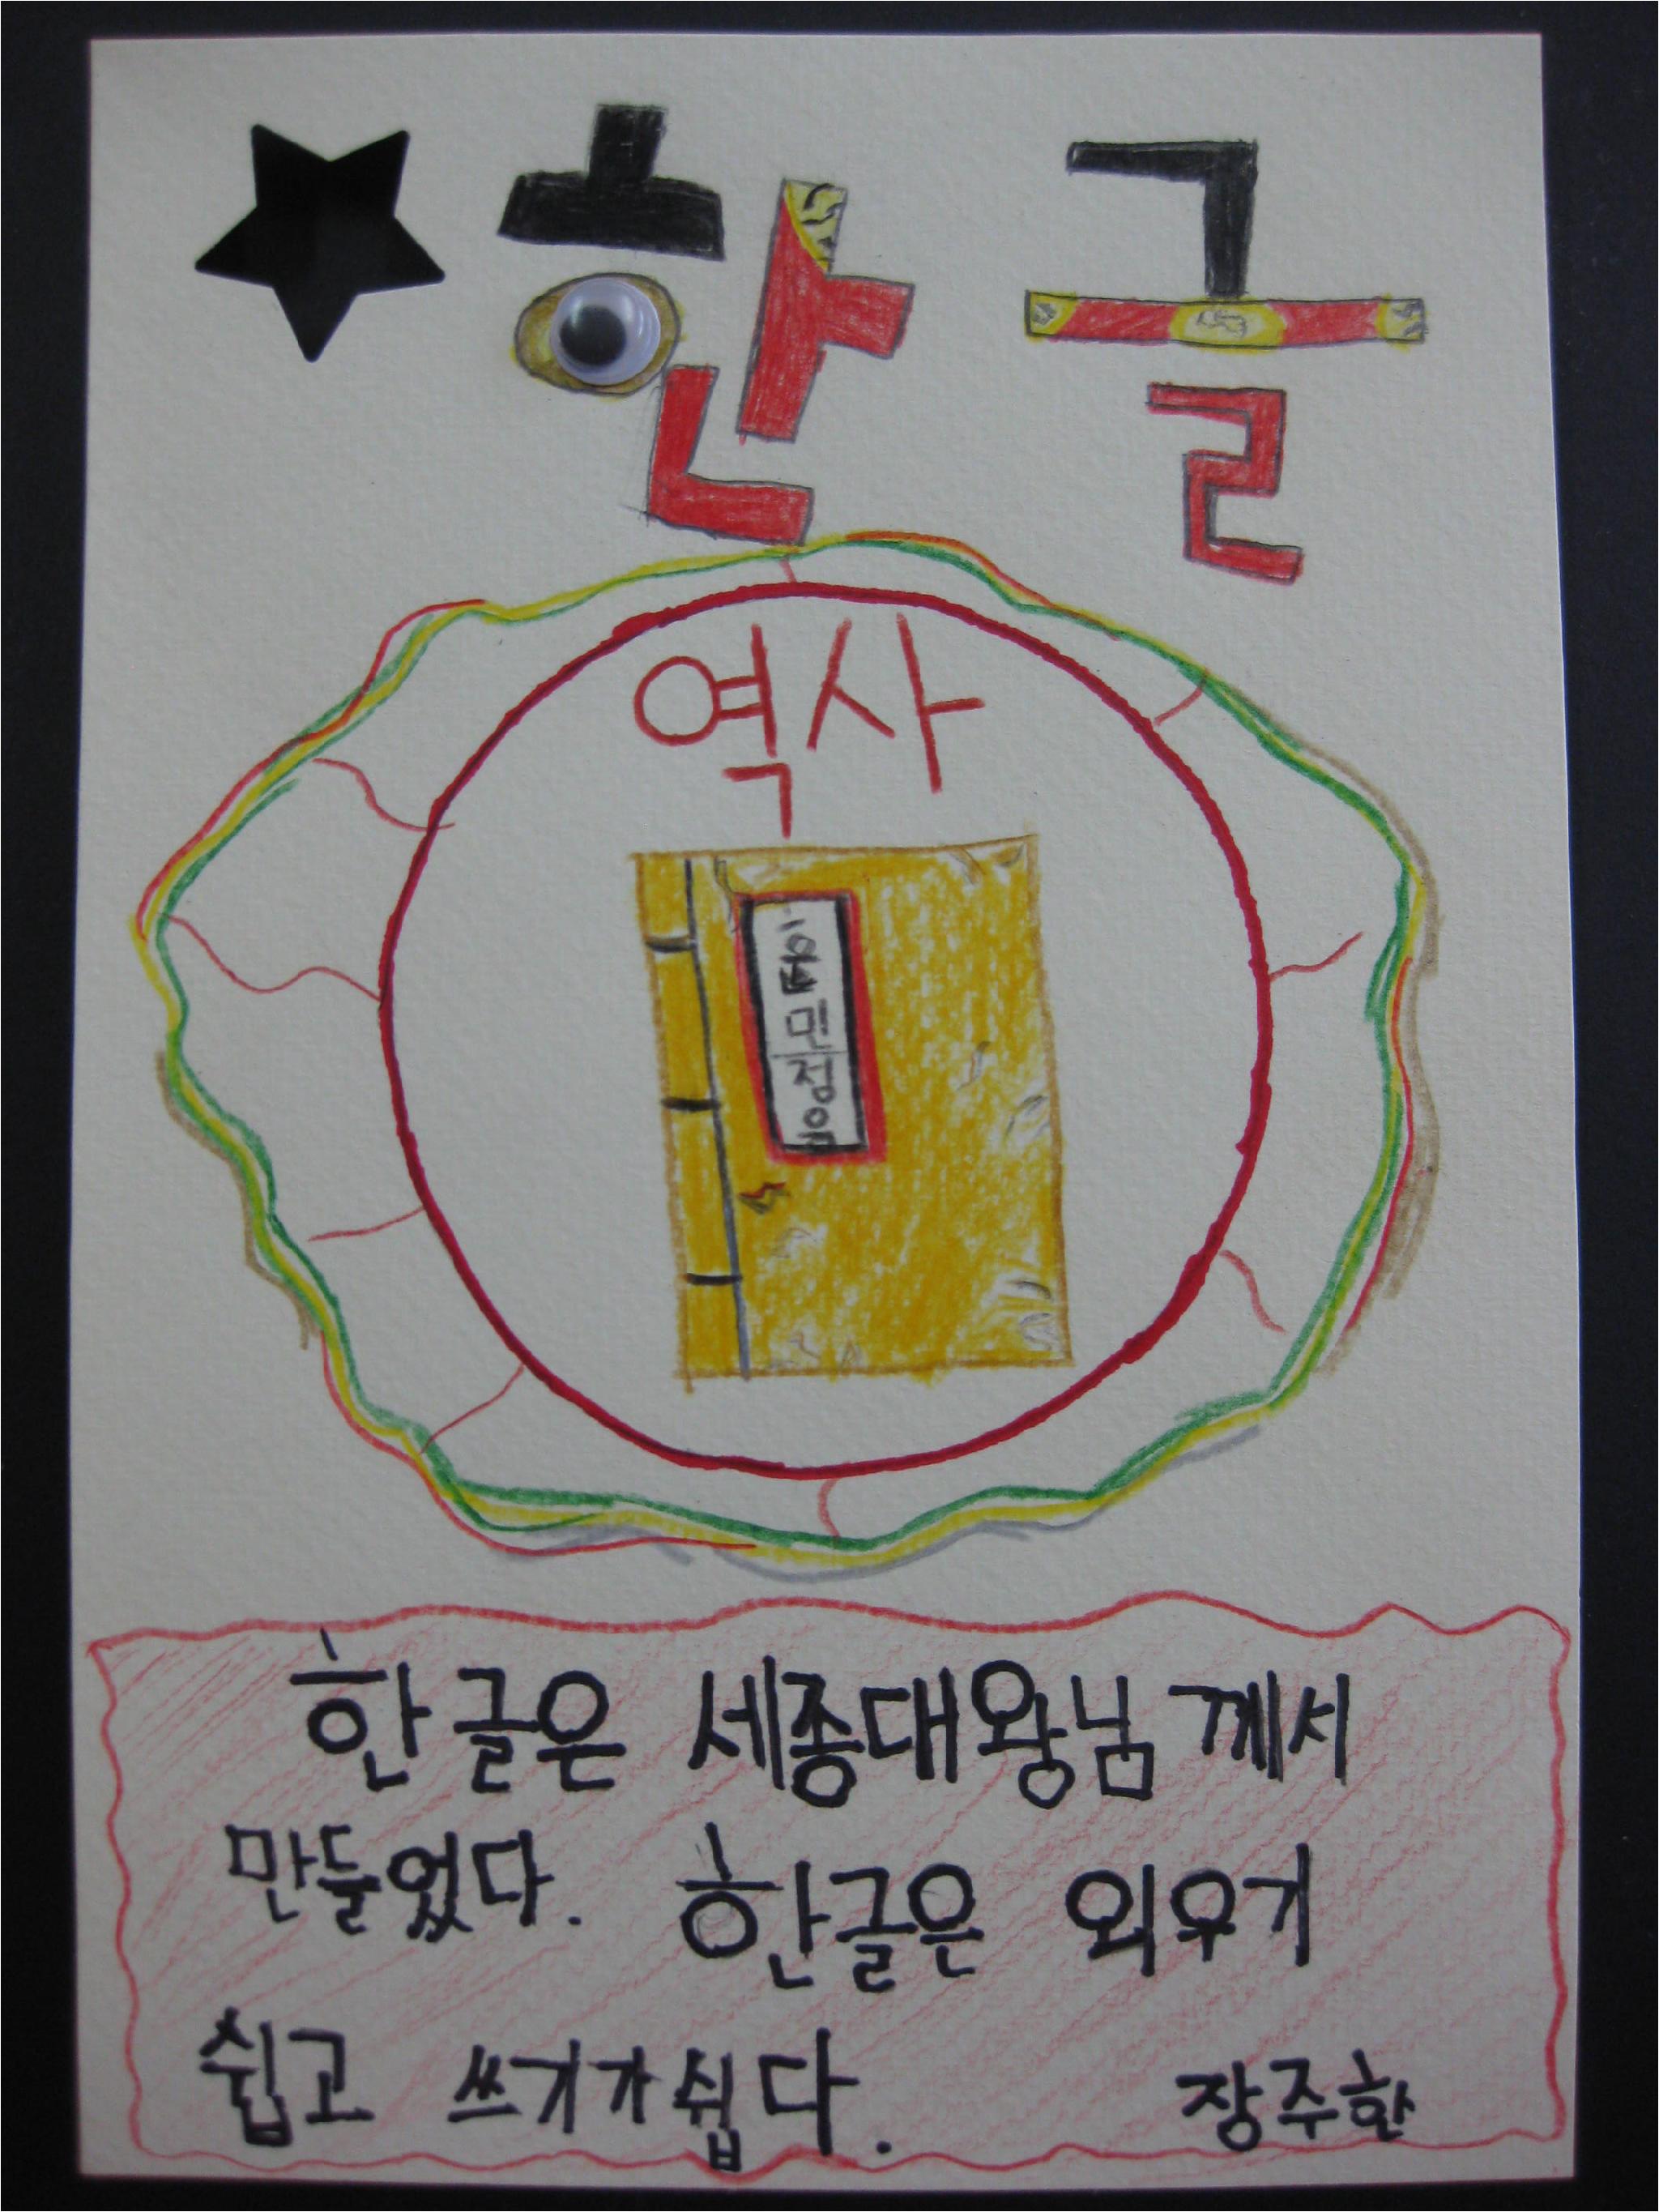 한글
역사
훈민정음
한글은 세종대왕님께서
만들었다. 한글은 외우기
쉽고 쓰기가 쉽다. 장주한